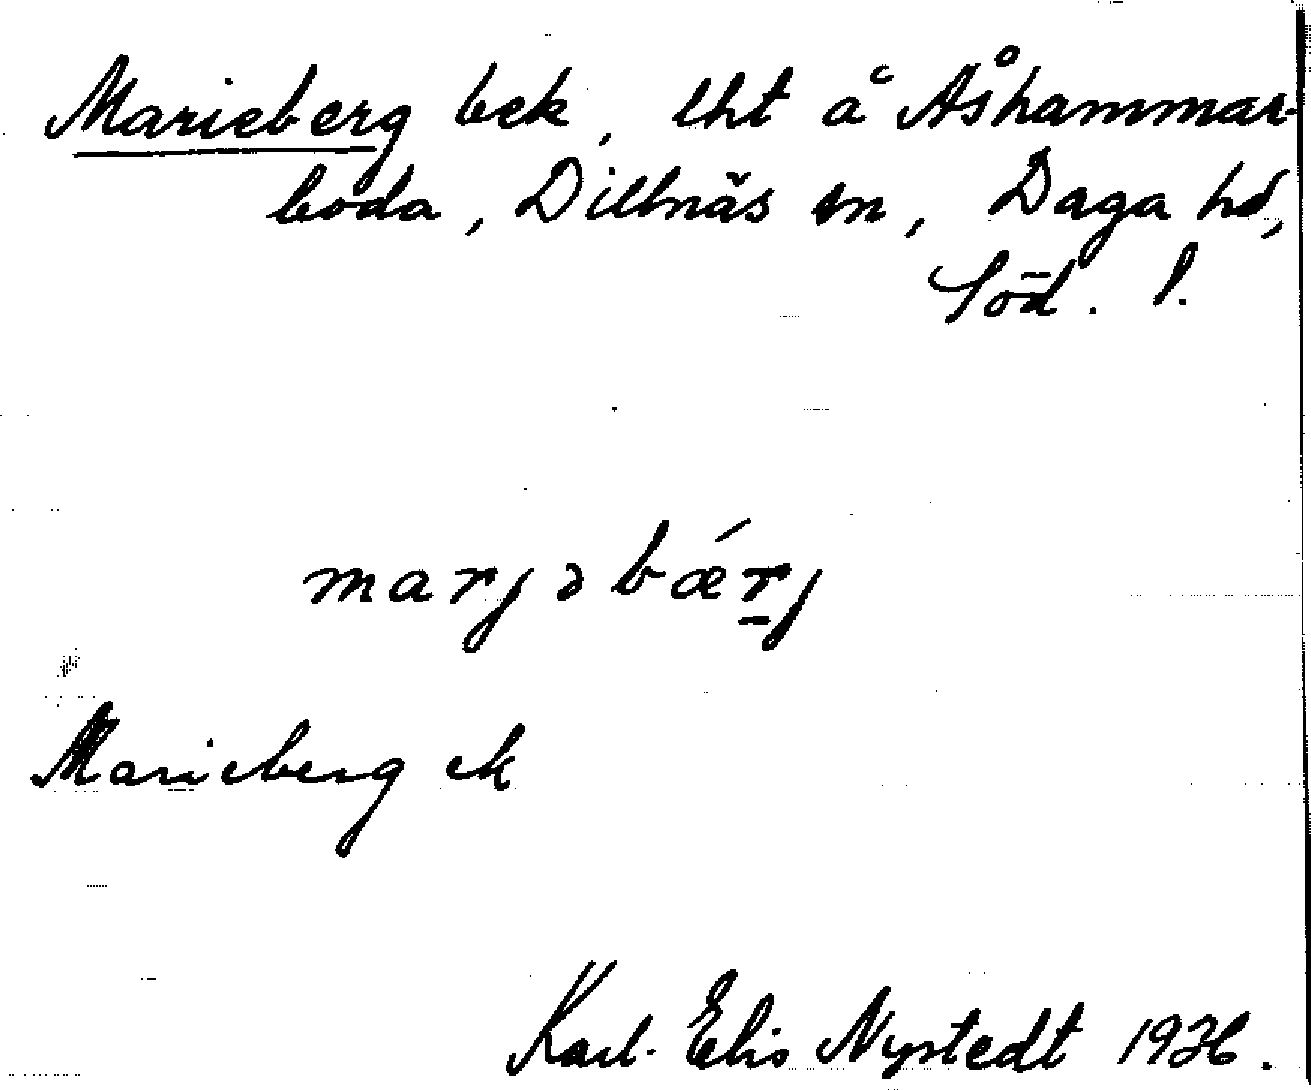 Marieberg bek, lht å Åshammar-
boda, Dillnäs sn, Daga hd,
Söd. l.
marjəbǽrj
Marieberg ek
Karl-Elis Nystedt 1936.